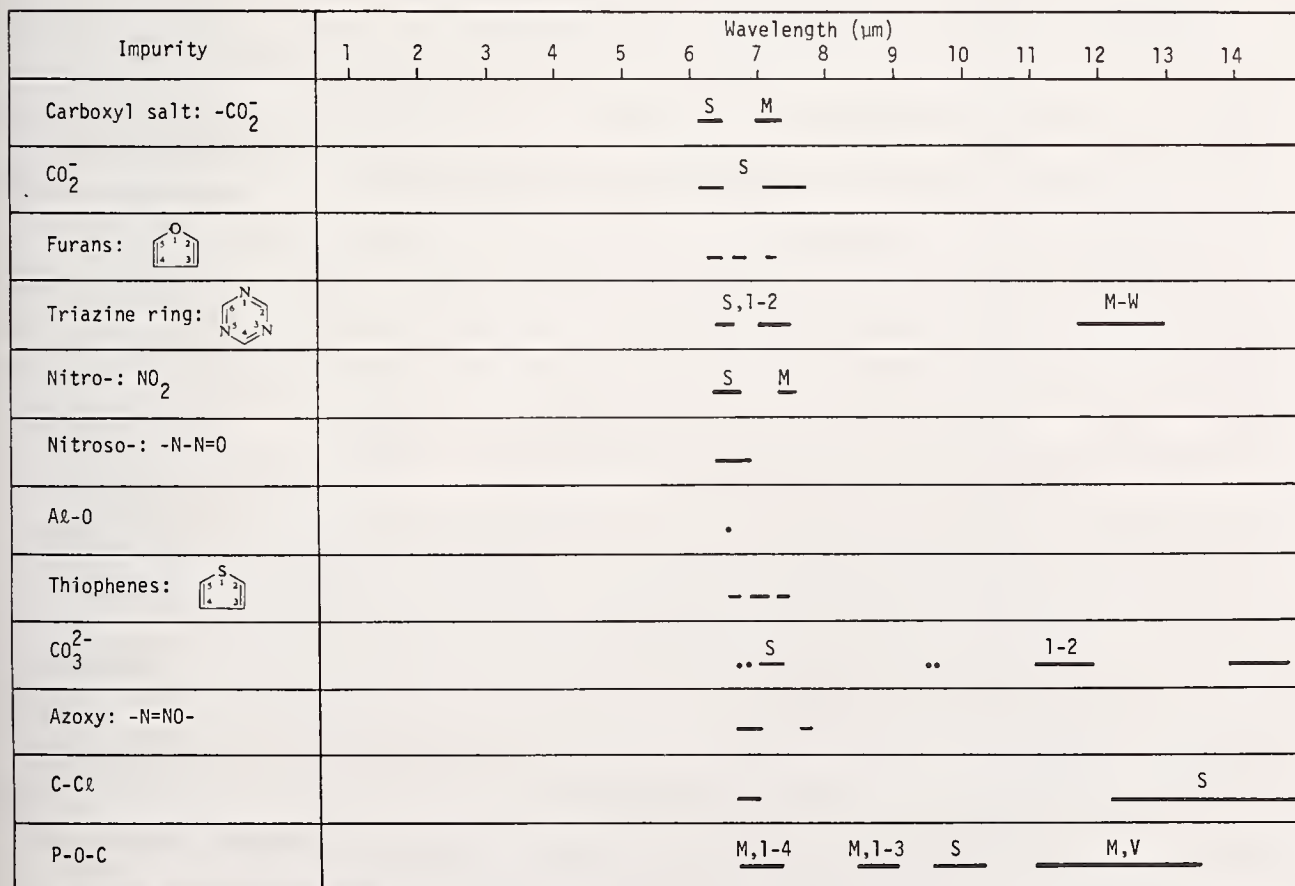 Impurity
Wavelength (µm)
1 2 3 4 5 6 7 8 9 10 11 12 13 14
Carboxyl salt: -CO₂⁻
S M
CO₂⁻
S
Furans:
O
5 1 2
4 3
Triazine ring:
N
6 1 2
N 5 4 3 N
S,1-2 M-W
Nitro-: NO₂
S M
Nitroso-: -N-N=O
Aℓ-O
Thiophenes:
S
5 1 2
4 3
CO₃²⁻
S 1-2
Azoxy: -N=NO-
C-Cℓ
S
P-O-C
M,1-4 M,1-3 S M,V